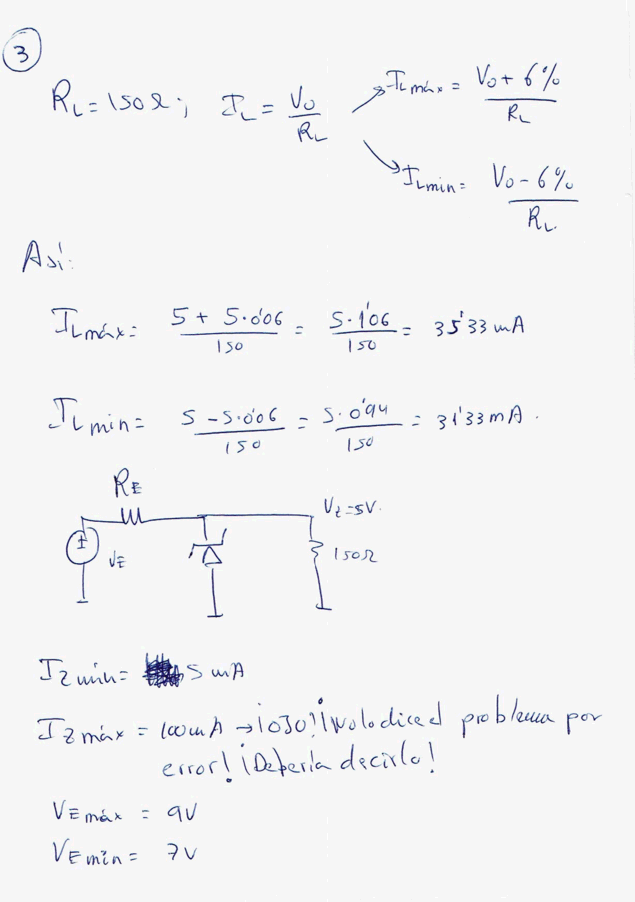 3
R_L = 150Ω; I_L = V_O / R_L
I_L máx = V_O + 6% / R_L
I_L min = V_O - 6% / R_L.
Así:
I_L máx = 5 + 5·0'06 / 150 = 5·1'06 / 150 = 35'33 mA
I_L min = 5 - 5·0'06 / 150 = 5·0'94 / 150 = 31'33 mA.
R_E
V_Z = 5V.
V_E
150Ω
I_Z min = 5 mA
I_Z máx = 100 mA → ¡OJO! ¡No lo dice el problema por
error! ¡Debería decirlo!
V_E máx = 9V
V_E min = 7V